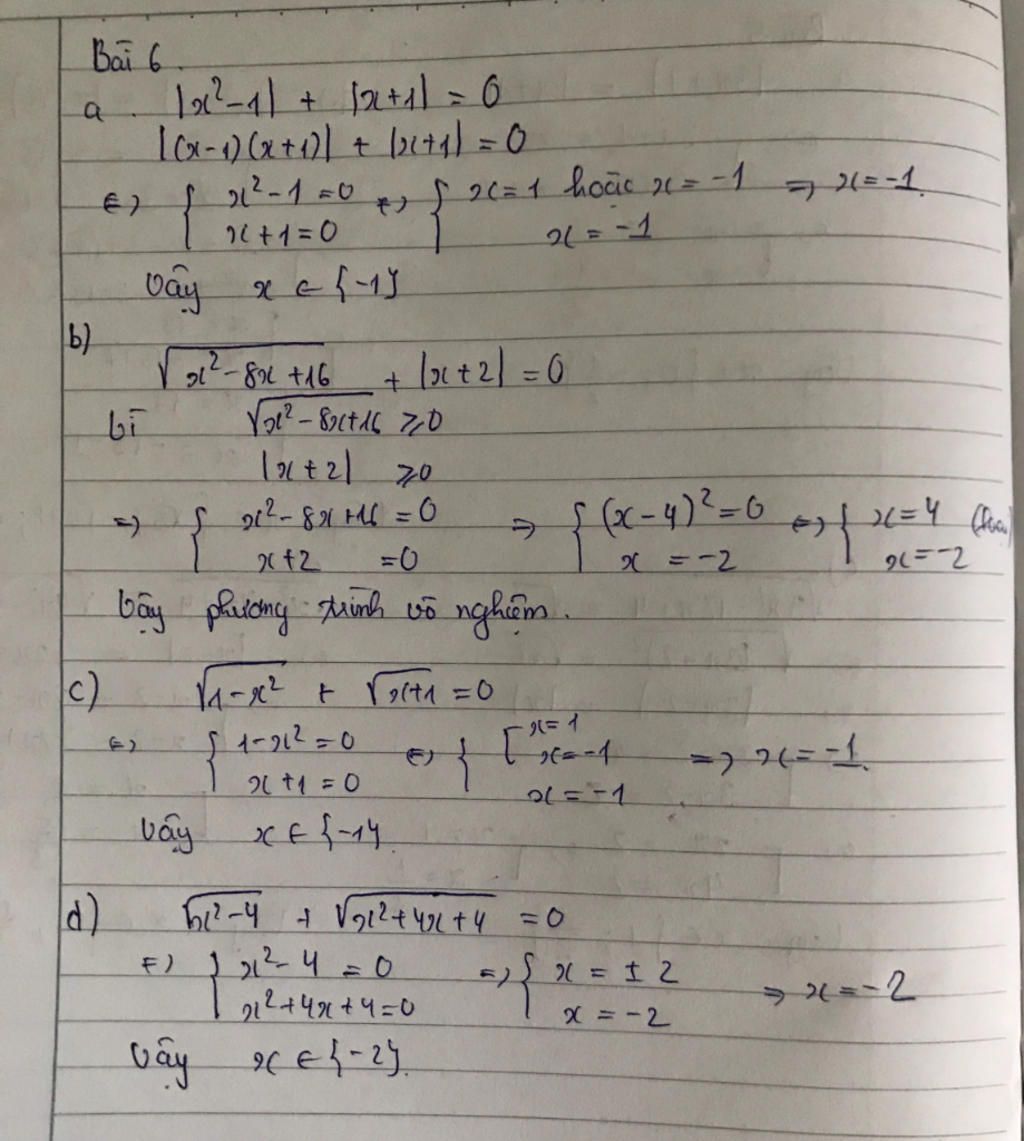 Bài 6.
a. |x²-1| + |x+1| = 0
|(x-1)(x+1)| + |x+1| = 0
⇔ { x²-1 = 0 ⇔ { x = 1 hoặc x = -1 ⇒ x = -1.
x+1 = 0 x = -1
Vậy x ∈ {-1}
b)
√(x²-8x+16) + |x+2| = 0
Vì √(x²-8x+16) ≥ 0
|x+2| ≥ 0
⇒ { x²-8x+16 = 0 ⇒ { (x-4)² = 0 ⇔ { x = 4
x+2 = 0 x = -2 x = -2
Vậy phương trình vô nghiệm.
c) √(1-x²) + √(x+1) = 0
⇔ { 1-x² = 0 ⇔ { [ x = 1
x = -1 ⇒ x = -1.
x+1 = 0 x = -1
Vậy x ∈ {-1}.
d) √(x²-4) + √(x²+4x+4) = 0
⇔ { x²-4 = 0 ⇒ { x = ±2 ⇒ x = -2
x²+4x+4 = 0 x = -2
Vậy x ∈ {-2}.